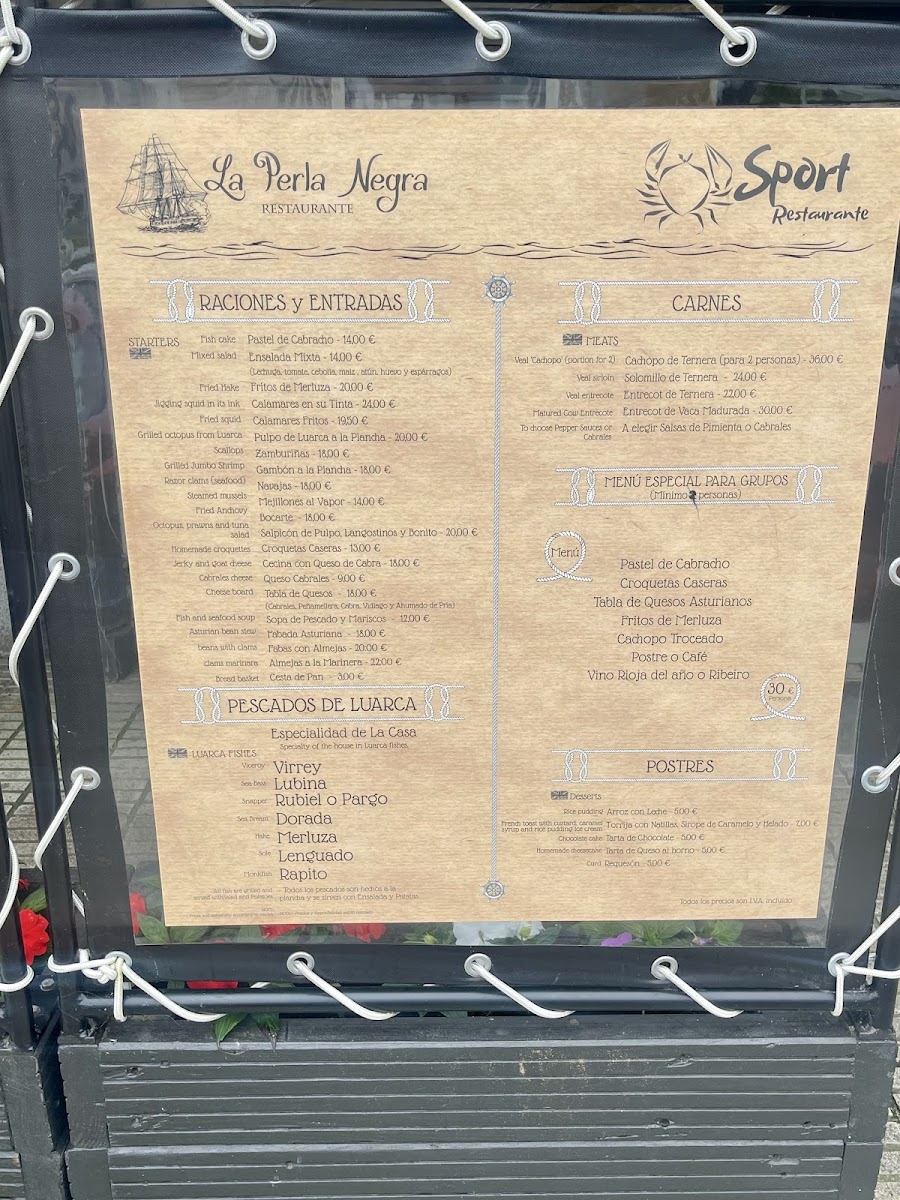 La Perla Negra
RESTAURANTE
Sport
Restaurante
RACIONES y ENTRADAS
STARTERS
Fish cake Pastel de Cabracho - 14,00 €
Mixed salad Ensalada Mixta - 14,00 €
(Lechuga, tomate, cebolla, maíz, atún, huevo y espárragos)
Fried Hake Fritos de Merluza - 20,00 €
Jigging squid in its ink Calamares en su Tinta - 24,00 €
Fried squid Calamares Fritos - 19,50 €
Grilled octopus from Luarca Pulpo de Luarca a la Plancha - 20,00 €
Scallops Zamburiñas - 18,00 €
Grilled Jumbo Shrimp Gambón a la Plancha - 18,00 €
Razor clams (seafood) Navajas - 18,00 €
Steamed mussels Mejillones al Vapor - 14,00 €
Fried Anchovy Bocarte - 18,00 €
Octopus, prawns and tuna
salad Salpicón de Pulpo, Langostinos y Bonito - 20,00 €
Homemade croquettes Croquetas Caseras - 13,00 €
Jerky and goat cheese Cecina con Queso de Cabra - 18,00 €
Cabrales cheese Queso Cabrales - 9,00 €
Cheese board Tabla de Quesos - 18,00 €
(Cabrales, Peñamellera, Cabra, Vidiago y Ahumado de Pría)
Fish and seafood soup Sopa de Pescado y Mariscos - 12,00 €
Asturian bean stew Fabada Asturiana - 18,00 €
beans with clams Fabas con Almejas - 20,00 €
clams marinara Almejas a la Marinera - 22,00 €
Bread basket Cesta de Pan - 3,00 €
PESCADOS DE LUARCA
Especialidad de La Casa
Specialty of the house in Luarca fishes
LUARCA FISHES
Viceroy Virrey
Sea Bass Lubina
Snapper Rubiel o Pargo
Sea Bream Dorada
Hake Merluza
Sole Lenguado
Monkfish Rapito
All fish are grilled and
served with salad and Potatoes
- Todos los pescados son hechos a la
plancha y se sirven con Ensalada y Patatas
CARNES
MEATS
Veal 'Cachopo' (portion for 2) Cachopo de Ternera (para 2 personas) - 36,00 €
Veal sirloin Solomillo de Ternera - 24,00 €
Veal entrecote Entrecot de Ternera - 22,00 €
Matured Cow Entrecote Entrecot de Vaca Madurada - 30,00 €
To choose Pepper Sauces or
Cabrales A elegir Salsas de Pimienta o Cabrales
MENÚ ESPECIAL PARA GRUPOS
(Mínimo personas)
Menú
Pastel de Cabracho
Croquetas Caseras
Tabla de Quesos Asturianos
Fritos de Merluza
Cachopo Troceado
Postre o Café
Vino Rioja del año o Ribeiro
30 €
Persona
POSTRES
Desserts
Rice pudding Arroz con Leche - 5,00 €
French toast with custard, caramel
syrup and rice pudding ice cream Torrija con Natillas, Sirope de Caramelo y Helado - 7,00 €
Chocolate cake Tarta de Chocolate - 5,00 €
Homemade cheesecake Tarta de Queso al horno - 5,00 €
Curd Requesón - 5,00 €
Todos los precios son I.V.A. Incluido